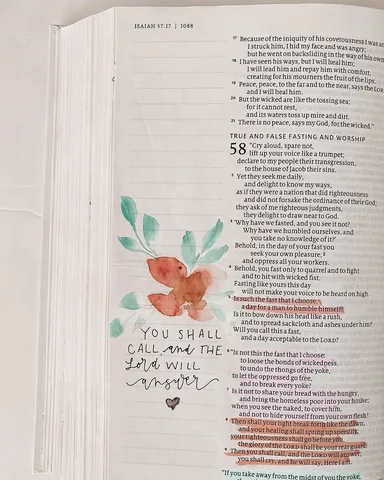 ISAIAH 57:17 | 1088
17 Because of the iniquity of his covetousness I was an
I struck him, I hid my face and was angry;
but he went on backsliding in the way of his own
18 I have seen his ways, but I will heal him;
I will lead him and repay him with comfort,
creating for his mourners the fruit of the lips.
19 Peace, peace, to the far and to the near, says the LOR
and I will heal him.
20 But the wicked are like the tossing sea;
for it cannot rest,
and its waters toss up mire and dirt.
21 There is no peace, says my God, for the wicked."
TRUE AND FALSE FASTING AND WORSHIP
58 "Cry aloud, spare not,
lift up your voice like a trumpet;
declare to my people their transgression,
to the house of Jacob their sins.
2 Yet they seek me daily,
and delight to know my ways,
as if they were a nation that did righteousness
and did not forsake the ordinance of their God;
they ask of me righteous judgments,
they delight to draw near to God.
3 'Why have we fasted, and you see it not?
Why have we humbled ourselves, and
you take no knowledge of it?'
Behold, in the day of your fast you
seek your own pleasure,
and oppress all your workers.
4 Behold, you fast only to quarrel and to fight
and to hit with wicked fist.
Fasting like yours this day
will not make your voice to be heard on high
5 Is such the fast that I choose,
a day for a man to humble himself?
Is it to bow down his head like a rush,
and to spread sackcloth and ashes under him?
Will you call this a fast,
and a day acceptable to the LORD?
6 "Is not this the fast that I choose:
to loose the bonds of wickedness,
to undo the thongs of the yoke,
to let the oppressed go free,
and to break every yoke?
7 Is it not to share your bread with the hungry,
and bring the homeless poor into your house;
when you see the naked, to cover him,
and not to hide yourself from your own flesh?
8 Then shall your light break forth like the dawn,
and your healing shall spring up speedily;
your righteousness shall go before you,
the glory of the LORD shall be your rear guard.
9 Then you shall call, and the LORD will answer;
you shall cry, and he will say, Here I am.
"If you take away from the midst of you the yoke,
YOU SHALL
CALL and THE
Lord WILL
answer